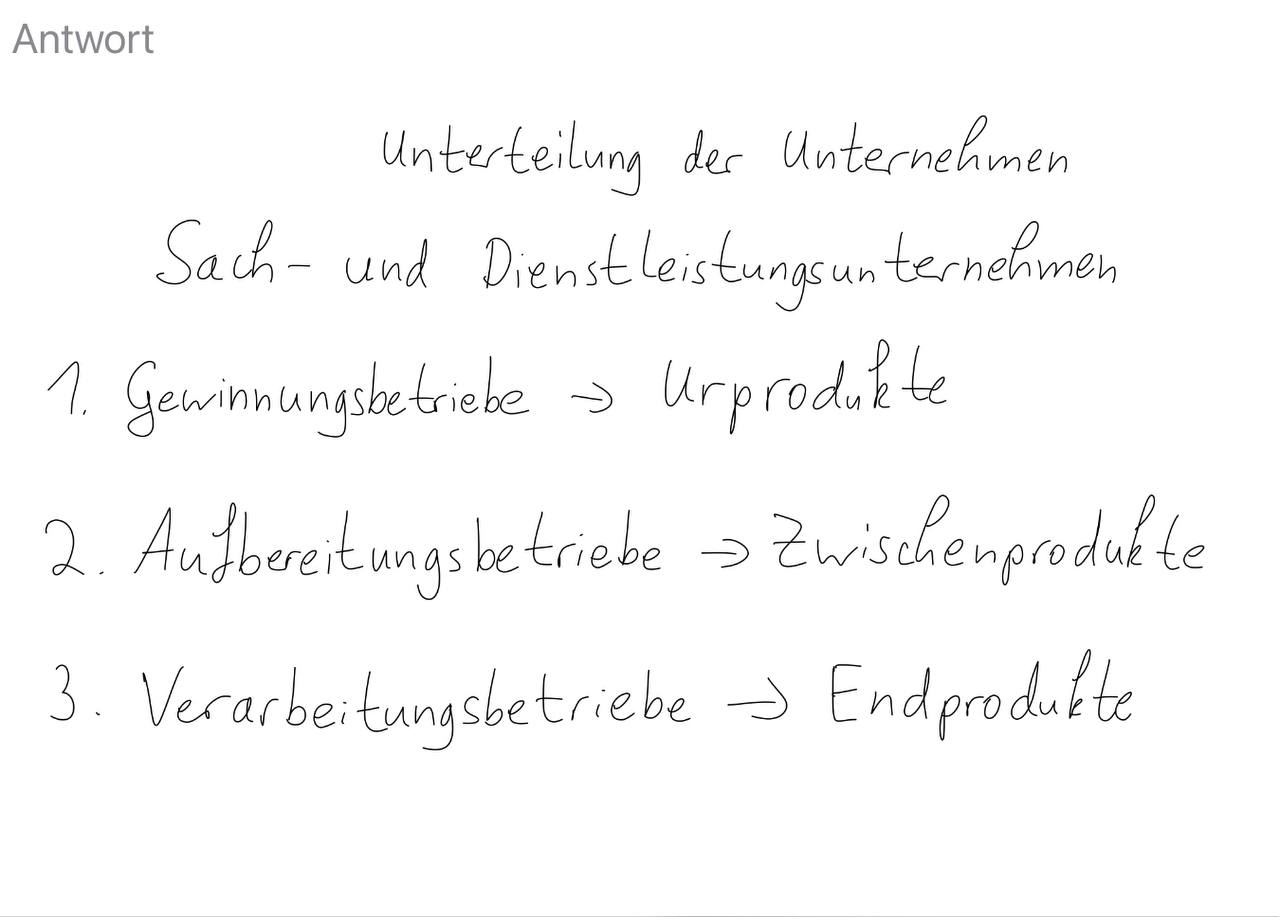 Antwort
Unterteilung der Unternehmen
Sach- und Dienstleistungsunternehmen
1. Gewinnungsbetriebe → Urprodukte
2. Aufbereitungsbetriebe → Zwischenprodukte
3. Verarbeitungsbetriebe → Endprodukte